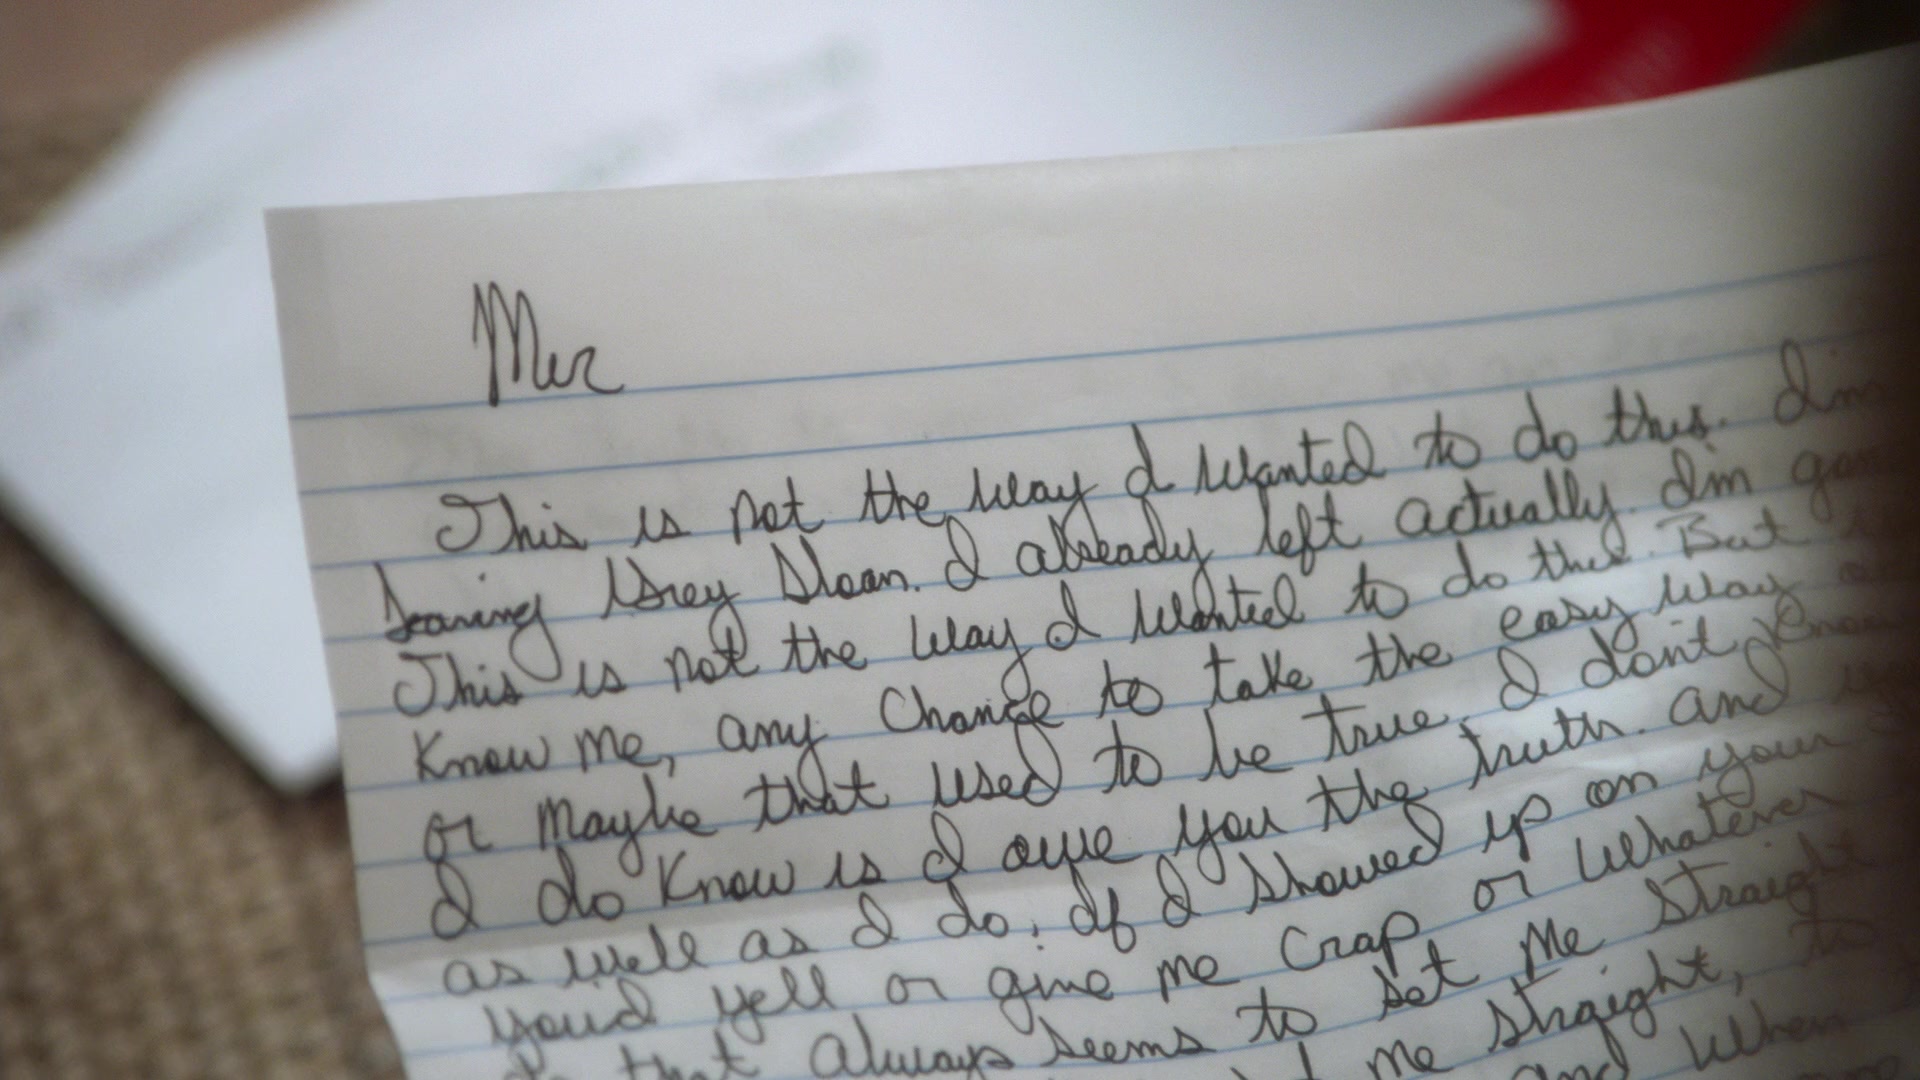 Mer
This is not the way I wanted to do this. I'm
leaving Grey Sloan. I already left actually. I'm
This is not the way I wanted to do this. But
know me, any change to take the easy way
or maybe that used to be true. I don't know
I do know is I owe you the truth. and
as well as I do. If I showed up on your
youd yell or give me crap or whatever
that always seems to set me straight
me straight, to
and when